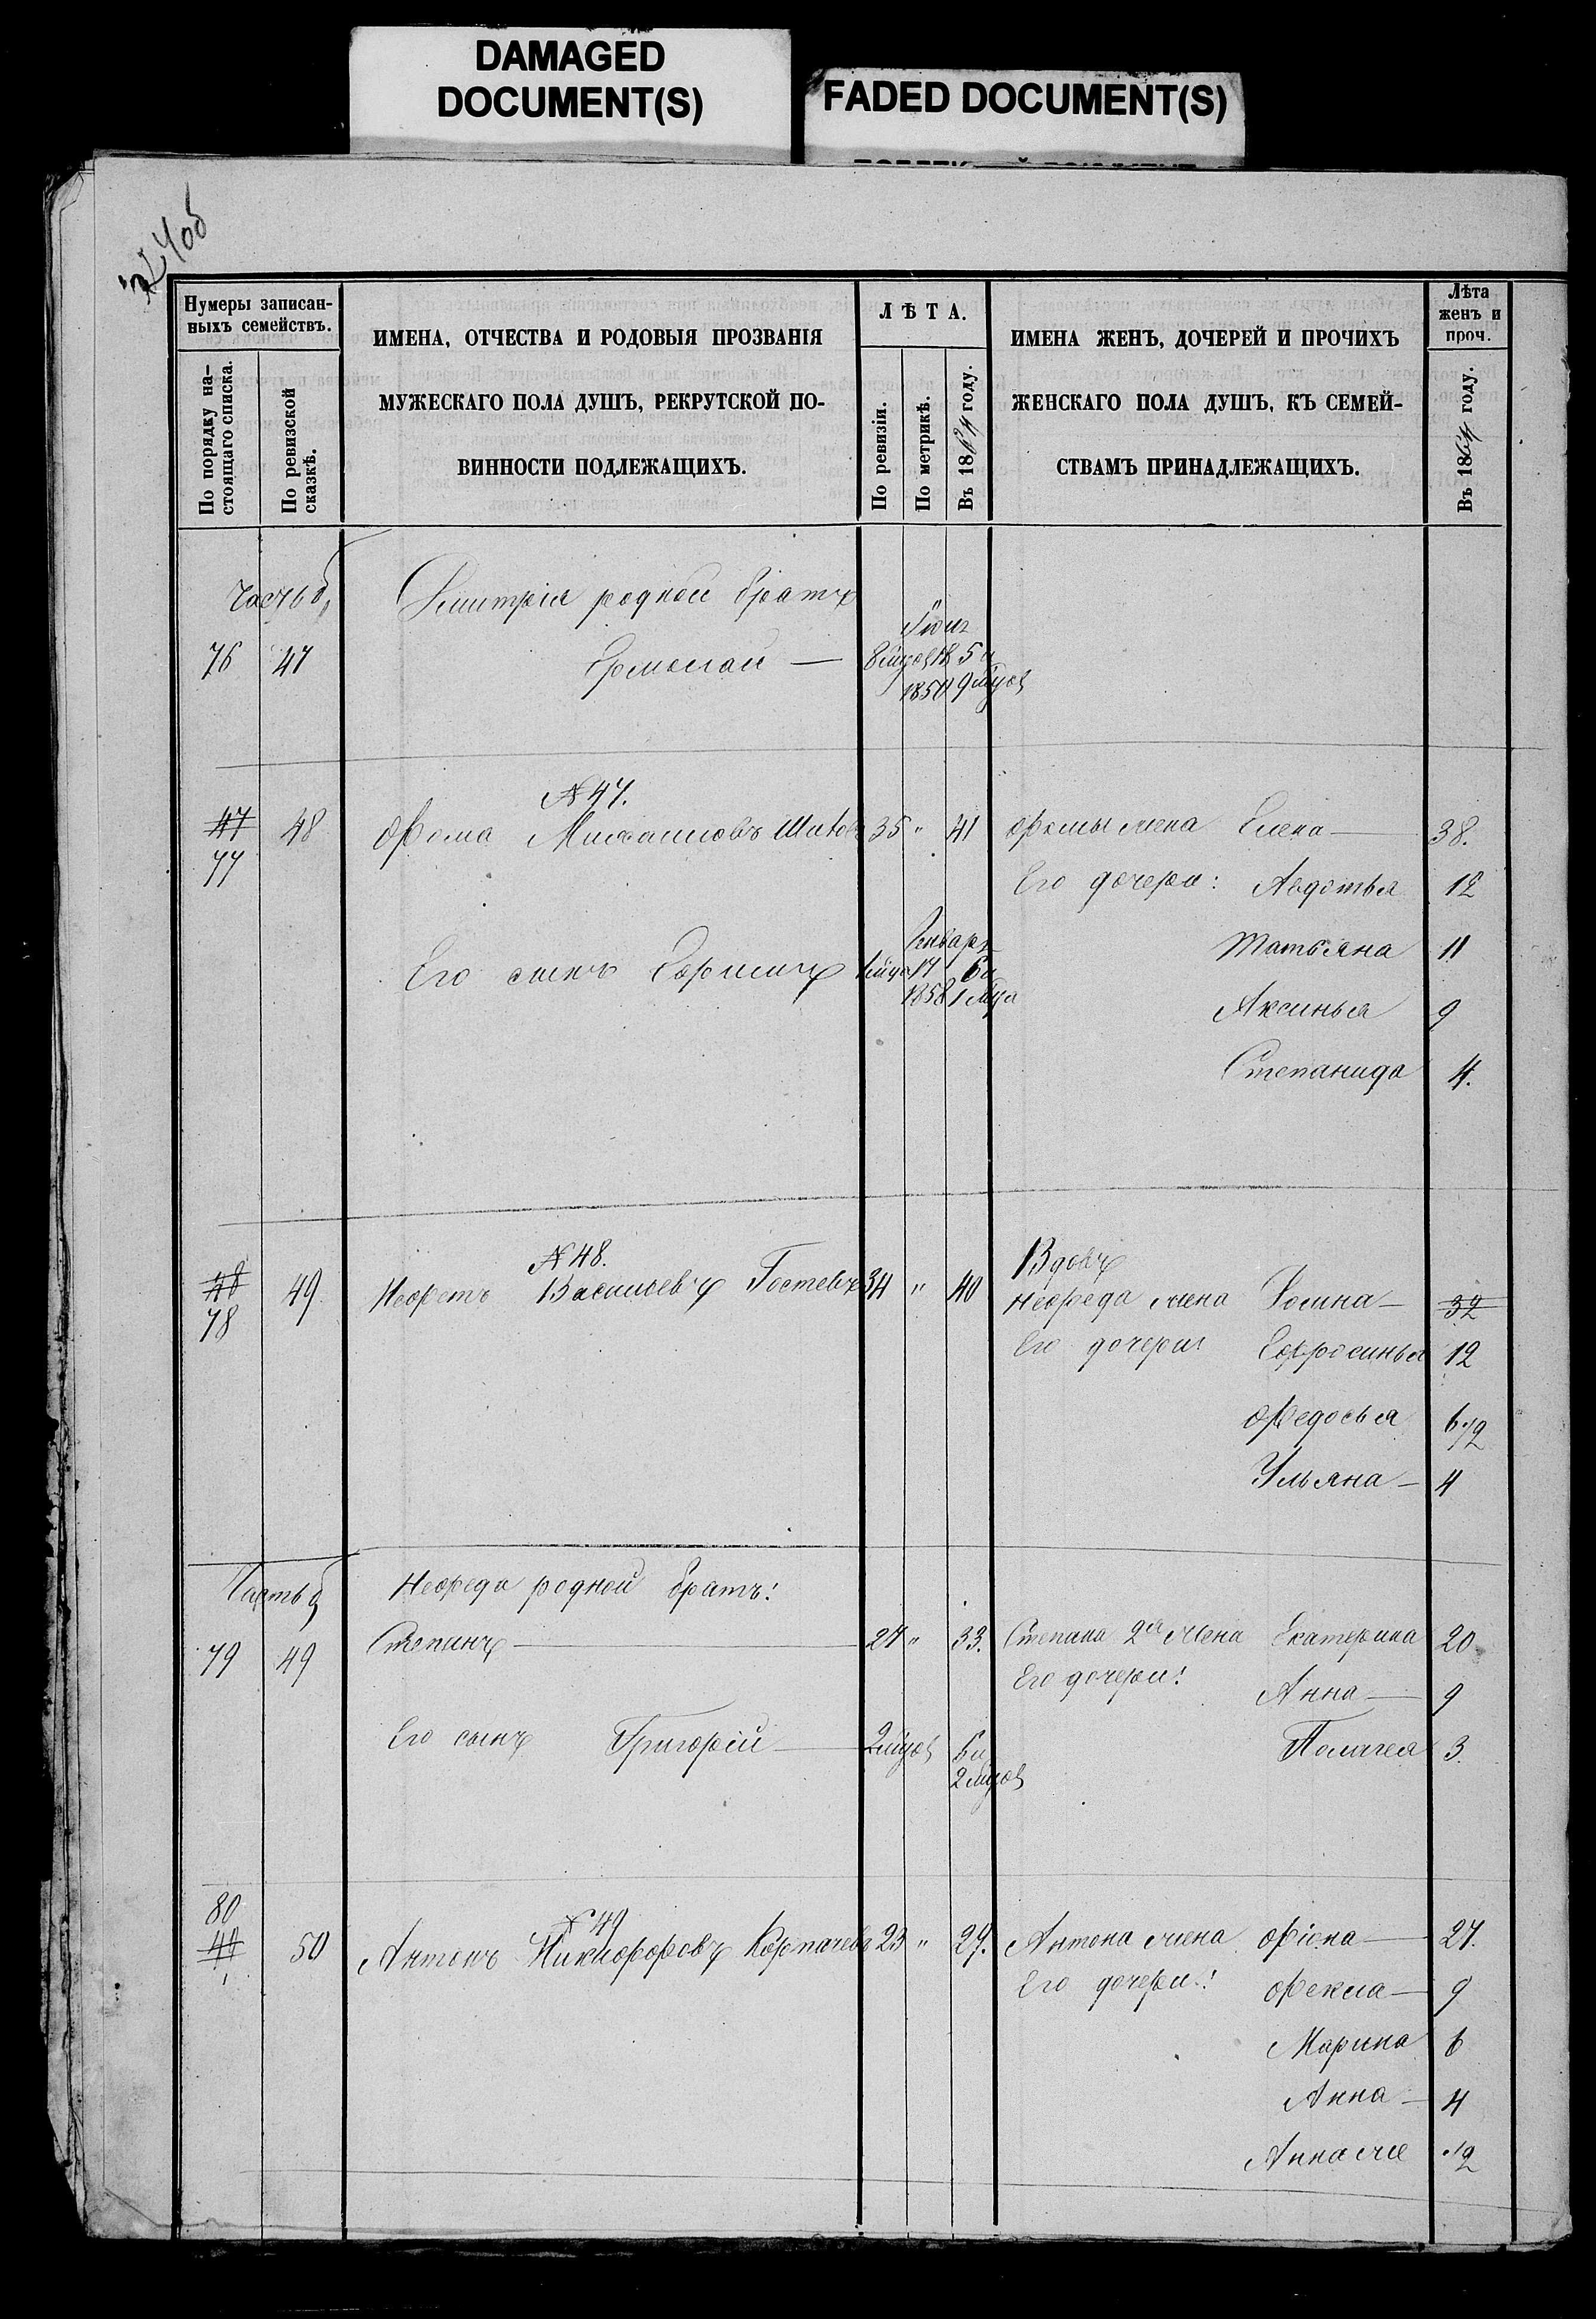 DAMAGED
DOCUMENT(S)
FADED DOCUMENT(S)
Нумеры записан-
ныхъ семействъ.
По порядку на-
стоящаго списка.
По ревизской
сказкѣ.
ИМЕНА, ОТЧЕСТВА И РОДОВЫЯ ПРОЗВАНІЯ
МУЖЕСКАГО ПОЛА ДУШЪ, РЕКРУТСКОЙ ПО-
ВИННОСТИ ПОДЛЕЖАЩИХЪ.
ЛѢТА.
По ревизіи.
По метрикѣ.
Въ 1864 году.
ИМЕНА ЖЕНЪ, ДОЧЕРЕЙ И ПРОЧИХЪ
ЖЕНСКАГО ПОЛА ДУШЪ, КЪ СЕМЕЙ-
СТВАМЪ ПРИНАДЛЕЖАЩИХЪ.
Лѣта
женъ и
проч.
Въ 1864 году.
Часть б
Дмитрія родной братъ
76 47 Ермолай —
№ 47.
47 48 Фома Михайловъ 35 " 41 Фомы жена Елена — 38.
77
Его дочери: Авдотья 12
Татьяна 11
Январь
Его сынъ 17
1858
Аксинья 9
Степанида 4.
№ 48.
48 49 Нефетъ Васильевъ Гостевъ 34 " 40
78
Вдовъ
Нефеда жена 32
Его дочери: Ефросинья 12
Федосья 6 1/2
Ульяна — 4
Часть б
Нефеда родной братъ:
79 49 Степанъ — 27 " 33. Степана 2я жена Екатерина 20
Его дочери: Анна — 9
Его сынъ Григорій —
Пелагея 3.
80
49 50 № 49
Антонъ Никифоровъ 23 " 29. Антона жена Фіона — 27.
Его дочери: Фекла — 9
Марина 6
Анна — 4
Анна же 1/2